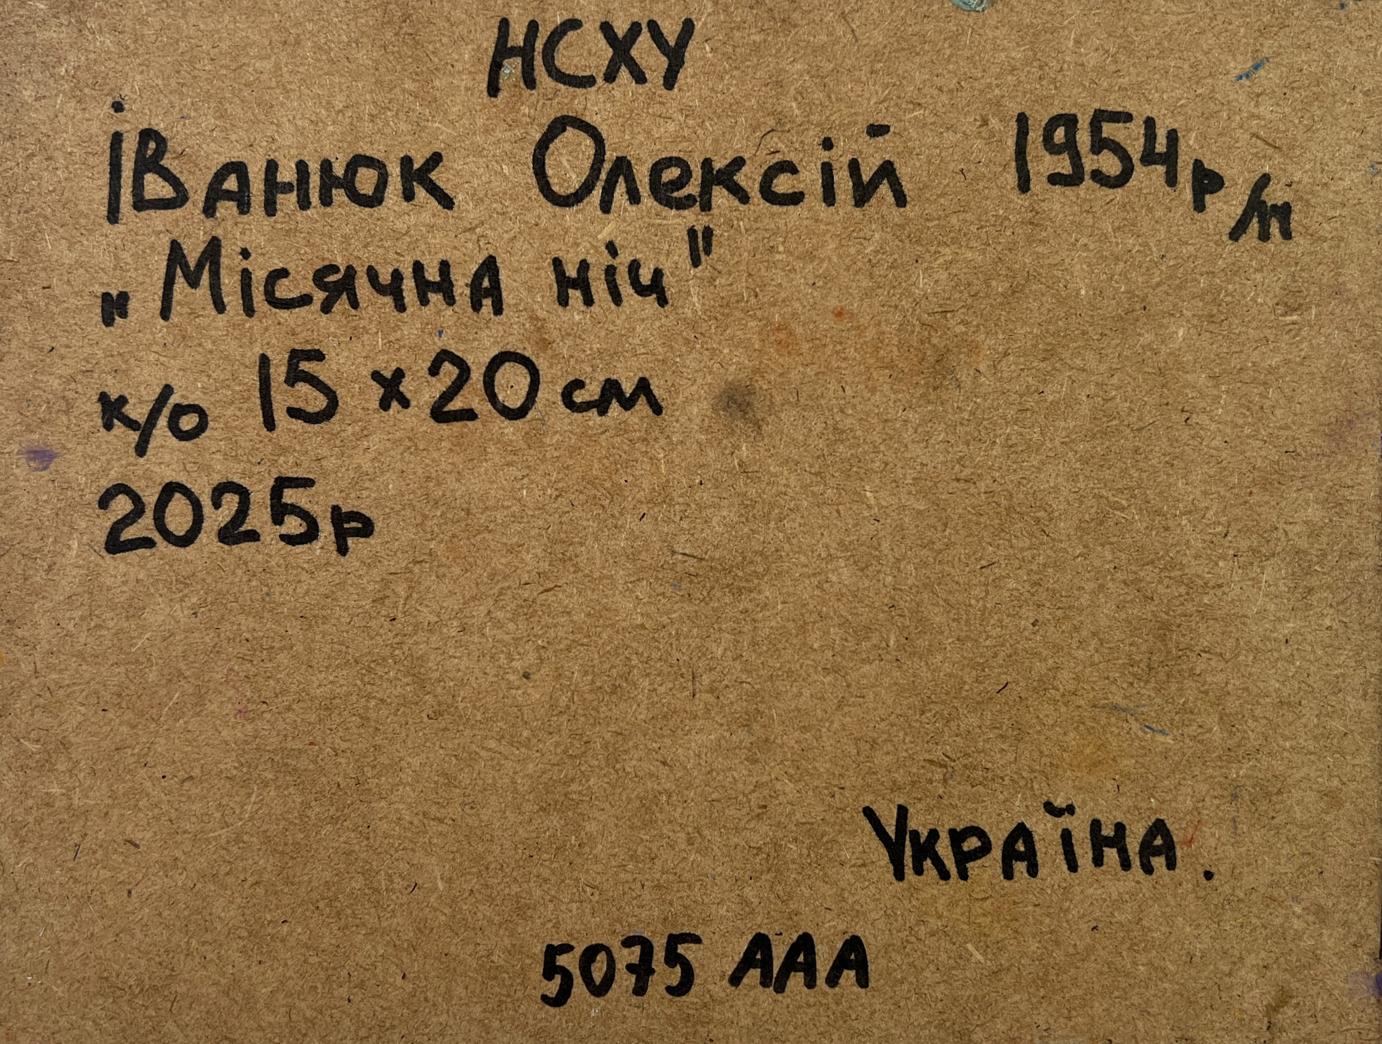 НСХУ
Іванюк Олексій 1954р/н
„Місячна ніч"
к/о 15 х 20 см
2025р
Україна.
5075 ААА